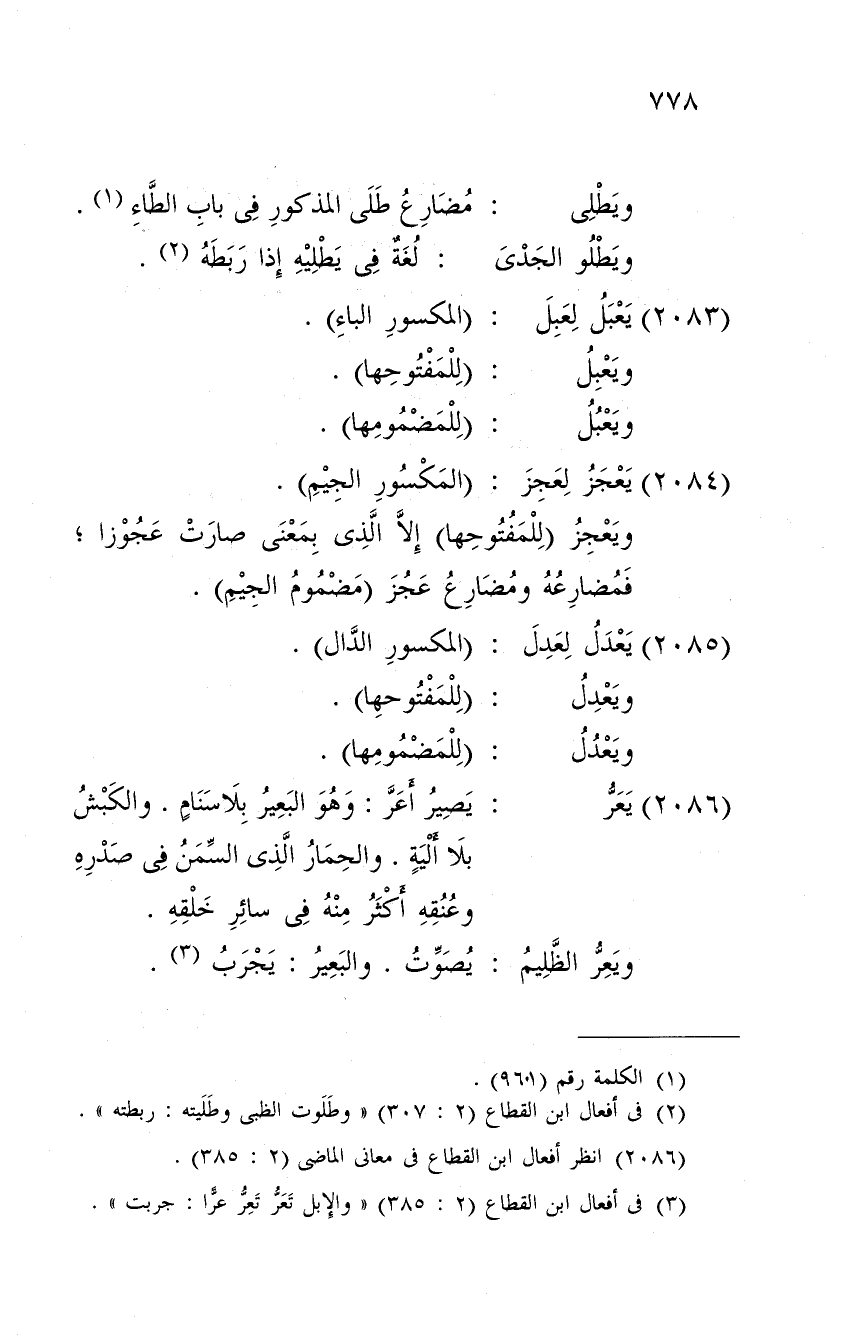 ٧٧٨
ويَطْلِى : مُضَارِعُ طَلَى المذكورِ فِى بابِ الطَّاءِ (١) .
ويَطْلُو الجَدْىَ : لُغَةٌ فِى يَطْلِيْهِ إِذا رَبَطَهُ (٢) .
(٢٠٨٣) يَعْبَلُ لِعَبِلَ : (المكسورِ الباءِ) .
ويَعْبِلُ : (لِلْمَفْتُوحِها) .
ويَعْبُلُ : (لِلْمَضْمُومِها) .
(٢٠٨٤) يَعْجَزُ لِعَجِزَ : (المَكْسُورِ الجِيْمِ) .
ويَعْجِزُ (لِلْمَفُتُوحِها) إِلاَّ الَّذِى بِمَعْنَى صارَتْ عَجُوْزا ؛
فَمُضارِعُهُ ومُضَارِعُ عَجُزَ (مَضْمُومُ الجِيْمِ) .
(٢٠٨٥) يَعْدَلُ لِعَدِلَ : (المكسورِ الدَّال) .
ويَعْدِلُ : (لِلْمَفْتُوحِها) .
ويَعْدُلُ : (لِلْمَضْمُومِها) .
(٢٠٨٦) يَعَرُّ : يَصِيرُ أَعَرَّ : وَهُوَ البَعِيرُ بِلَاسَنَامٍ . والكَبْشُ
بلَا أَلْيَةٍ . والحِمَارُ الَّذِى السِّمَنُ فِى صَدْرِهِ
وعُنُقِهِ أَكْثَرُ مِنْهُ فِى سائِرِ خَلْقِهِ .
ويَعِرُّ الظَّلِيمُ : يُصَوِّتُ . والبَعِيرُ : يَجْرَبُ (٣) .
(١) الكلمة رقم (٩٦٠١) .
(٢) فى أفعال ابن القطاع (٢ : ٣٠٧) « وطَلَوت الظبى وطَلَيته : ربطته » .
(٢٠٨٦) انظر أفعال ابن القطاع فى معانى الماضى (٢ : ٣٨٥) .
(٣) فى أفعال ابن القطاع (٢ : ٣٨٥) « والإبل تَعَرُّ تَعِرُّ عرًّا : جربت » .